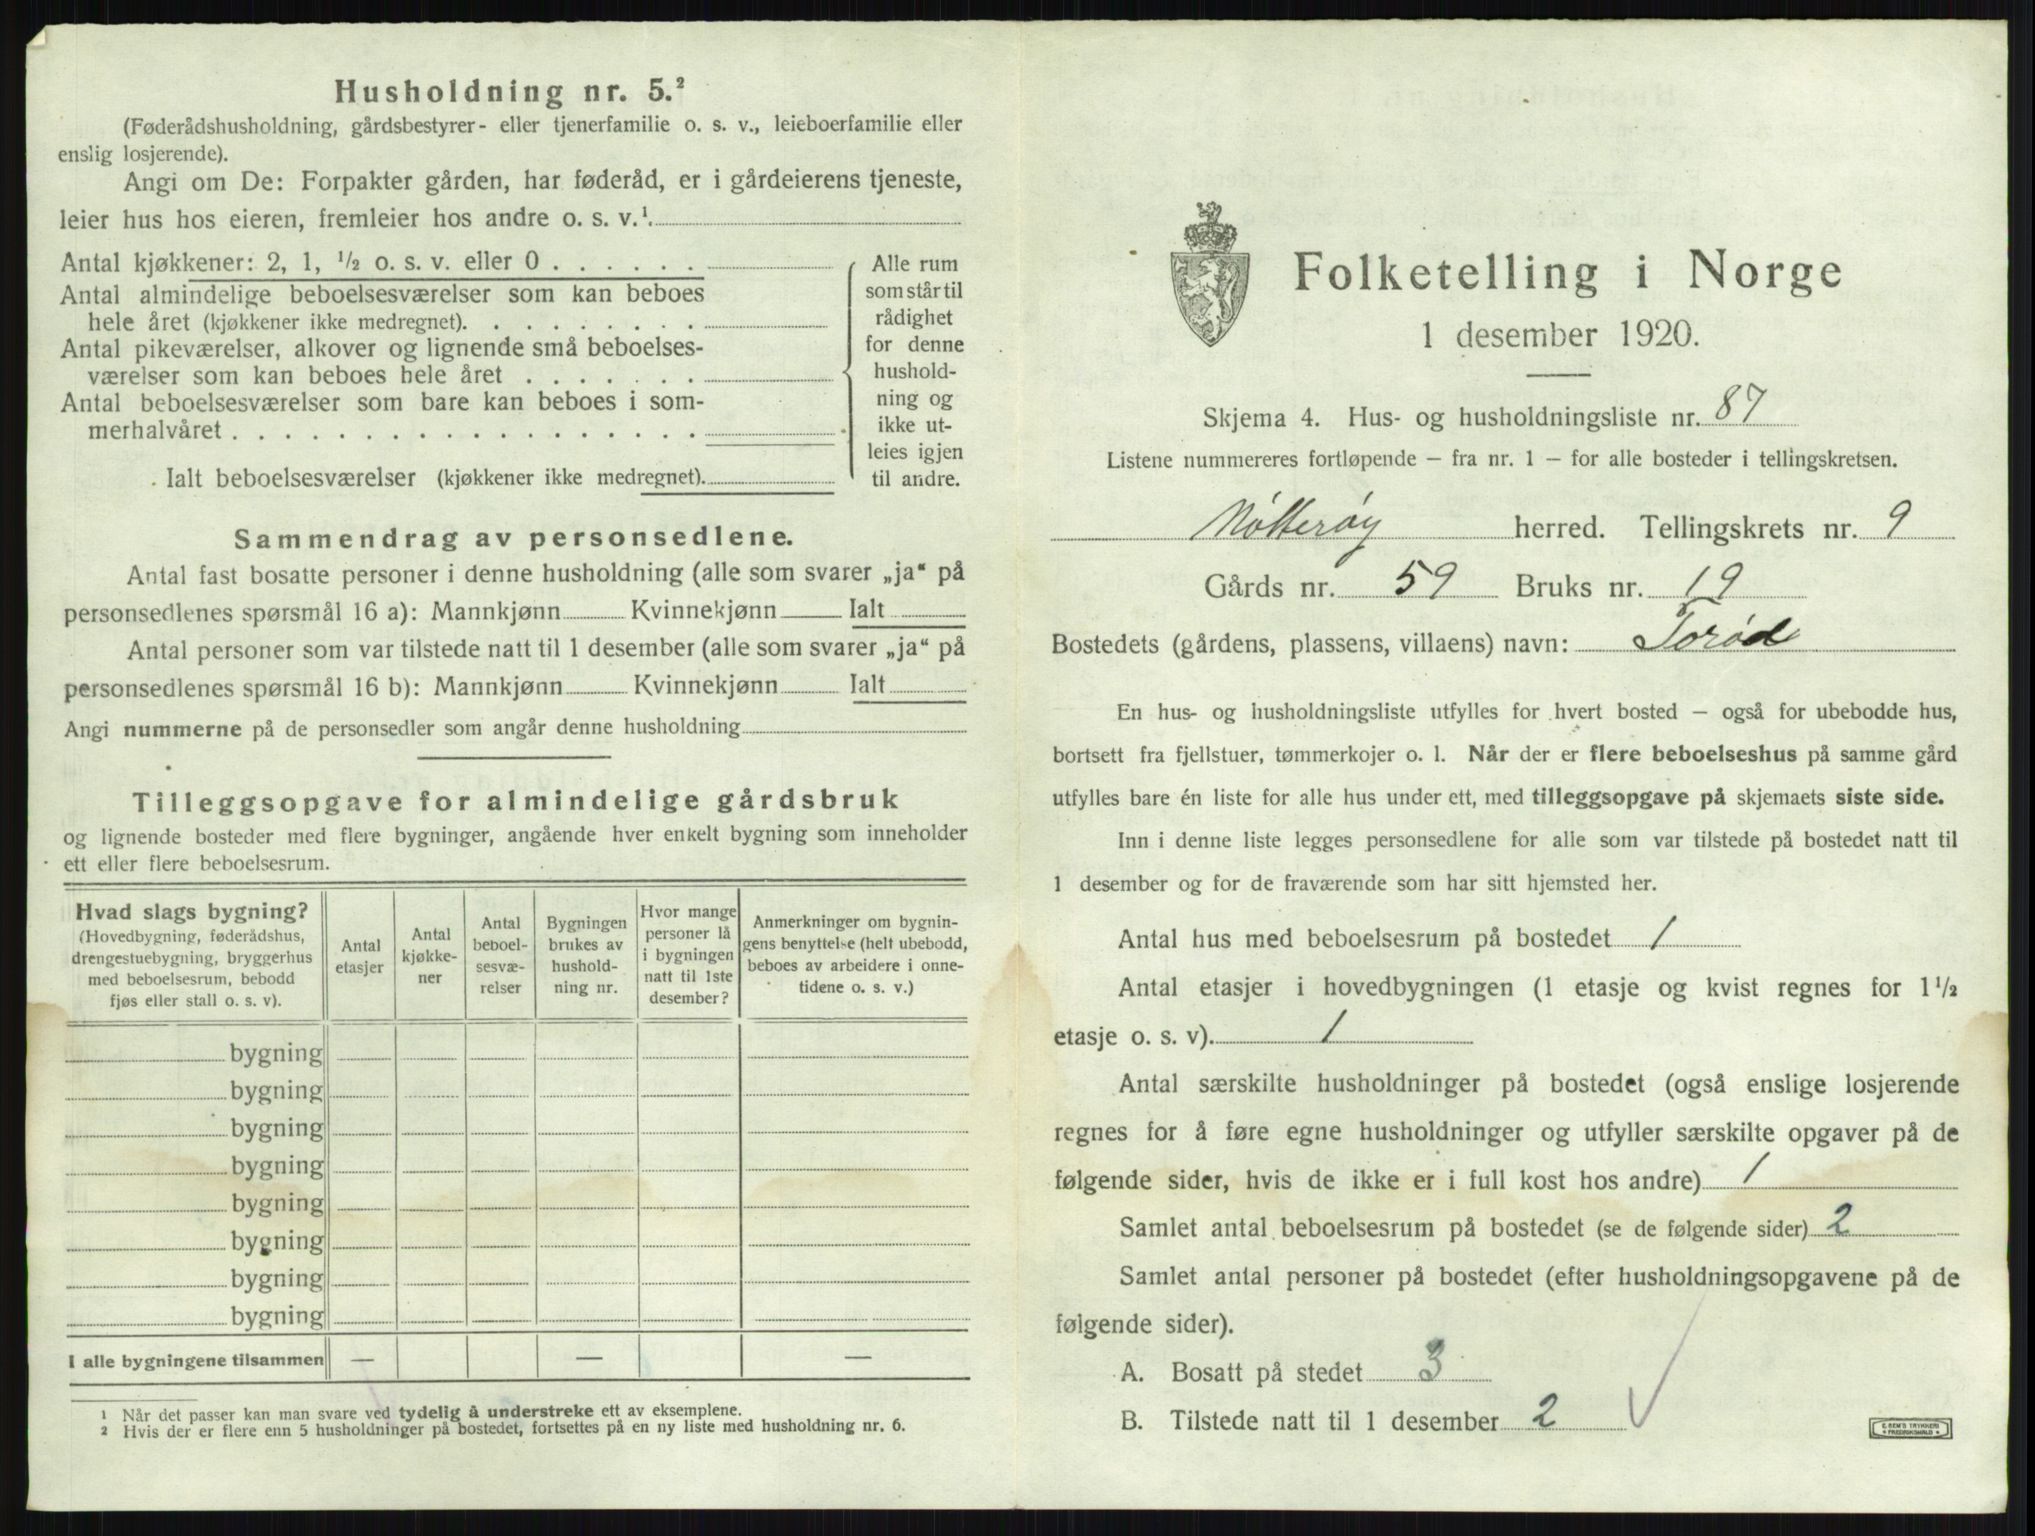 Husholdning nr. 5.²
(Føderådshusholdning, gårdsbestyrer- eller tjenerfamilie o. s. v., leieboerfamilie eller
enslig losjerende).
Angi om De: Forpakter gården, har føderåd, er i gårdeierens tjeneste,
leier hus hos eieren, fremleier hos andre o. s. v.¹
Antal kjøkkener: 2, 1, ½ o. s. v. eller 0 . . . . . .
Antal almindelige beboelsesværelser som kan beboes
hele året (kjøkkener ikke medregnet). . . . . . . . .
Antal pikeværelser, alkover og lignende små beboelses-
værelser som kan beboes hele året . . . . . . .
Antal beboelsesværelser som bare kan beboes i som-
merhalvåret . . . . . . . . . . . . . . . . . .
Ialt beboelsesværelser (kjøkkener ikke medregnet).
Alle rum
som står til
rådighet
for denne
hushold-
ning og
ikke ut-
leies igjen
til andre.
Sammendrag av personsedlene.
Antal fast bosatte personer i denne husholdning (alle som svarer „ja“ på
personsedlenes spørsmål 16 a): Mannkjønn Kvinnekjønn Ialt
Antal personer som var tilstede natt til 1 desember (alle som svarer „ja“ på
personsedlenes spørsmål 16 b): Mannkjønn Kvinnekjønn Ialt
Angi nummerne på de personsedler som angår denne husholdning
Tilleggsopgave for almindelige gårdsbruk
og lignende bosteder med flere bygninger, angående hver enkelt bygning som inneholder
ett eller flere beboelsesrum.
Hvad slags bygning?
(Hovedbygning, føderådshus,
drengestuebygning, bryggerhus
med beboelsesrum, bebodd
fjøs eller stall o. s. v).
Antal
etasjer
Antal
kjøkke-
ner
Antal
beboel-
sesvæ-
relser
Bygningen
brukes av
hushold-
ning nr.
Hvor mange
personer lå
i bygningen
natt til 1ste
desember?
Anmerkninger om bygnin-
gens benyttelse (helt ubebodd,
beboes av arbeidere i onne-
tidene o. s. v.)
bygning
bygning
bygning
bygning
bygning
bygning
bygning
bygning
I alle bygningene tilsammen — — —
¹ Når det passer kan man svare ved tydelig å understreke ett av eksemplene.
² Hvis der er flere enn 5 husholdninger på bostedet, fortsettes på en ny liste med husholdning nr. 6.
Folketelling i Norge
1 desember 1920.
Skjema 4. Hus- og husholdningsliste nr. 87
Listene nummereres fortløpende — fra nr. 1 — for alle bosteder i tellingskretsen.
Nøtterøy herred. Tellingskrets nr. 9
Gårds nr. 59 Bruks nr. 19
Bostedets (gårdens, plassens, villaens) navn: Torød
En hus- og husholdningsliste utfylles for hvert bosted — også for ubebodde hus,
bortsett fra fjellstuer, tømmerkojer o. l. Når der er flere beboelseshus på samme gård
utfylles bare én liste for alle hus under ett, med tilleggsopgave på skjemaets siste side.
Inn i denne liste legges personsedlene for alle som var tilstede på bostedet natt til
1 desember og for de fraværende som har sitt hjemsted her.
Antal hus med beboelsesrum på bostedet 1
Antal etasjer i hovedbygningen (1 etasje og kvist regnes for 1½
etasje o. s. v). 1
Antal særskilte husholdninger på bostedet (også enslige losjerende
regnes for å føre egne husholdninger og utfyller særskilte opgaver på de
følgende sider, hvis de ikke er i full kost hos andre) 1
Samlet antal beboelsesrum på bostedet (se de følgende sider) 2
Samlet antal personer på bostedet (efter husholdningsopgavene på de
følgende sider).
A. Bosatt på stedet 3
B. Tilstede natt til 1 desember 2
FREDRIKSHALD